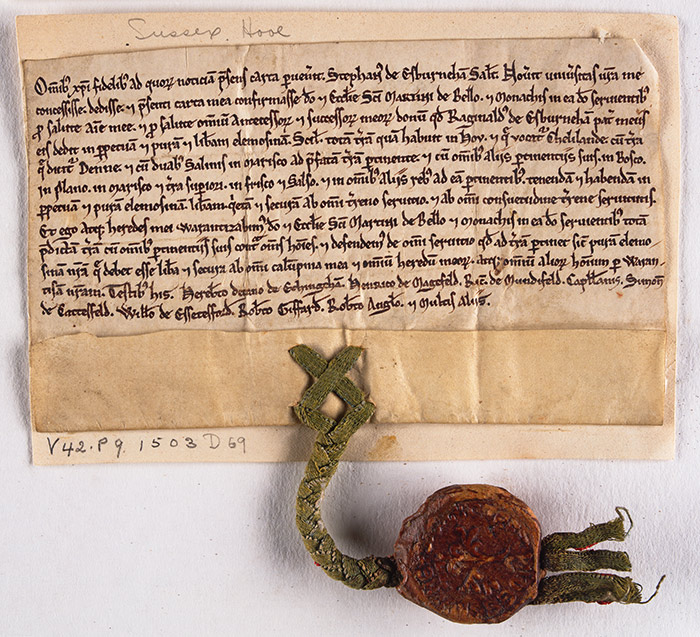 Sussex, Hooe
Omib; xpi fidelib; ad quor noticiā p̄sens carta puen̄it. Stephan; de Esburnehā Salt. Nou̇it uniūsitas ur̄a me
concessisse. dedisse. ⁊ p̄senti carta mea confirmasse dō ⁊ Ecclie Sc̄i Martini de Bello. ⁊ Monachis in ea dō seruientib;
p salute aīe mee. ⁊ p salute omniū Antecessor ⁊ successor meor donū qd Raginald; de Esburnehā pat̄ meus
eis dedit in ppetuā ⁊ purā ⁊ lib̄am elemosinā. Scil. totā t̄rā quā habuit in Hou. ⁊ q̄ uocat̄ Chelilande. cū t̄ra
q̄ dicit̄ Denne. ⁊ cū duab; Salinis in marisco ad p̄fatā t̄rā ptinente. ⁊ cū omib; alijs ptinentijs suis. in Bosco.
in plano. in marisco ⁊ t̄ra supiori. in frisco ⁊ Salso. ⁊ in omib; alijs reb; ad eā ptinentib;. tenendā ⁊ habendā in
ppetuā ⁊ purā elemosinā. lib̄am. q̄etā ⁊ securā ab omī t̄reno seruitio. ⁊ ab omī consuetudine t̄rene seruitutis.
Et ego atq; heredes mei Warantizabim; dō ⁊ Ecclie Sc̄i Martini de Bello ⁊ monachis in ea dō seruientib; totā
p̄dictā t̄rā cū omib; ptinentijs suis cont̄ om̄s hōies. ⁊ defendem; de omī seruitio qd ad t̄rā ptinet sic̄ purā elemo-
sinā nr̄ā q̄ debet esse lib̄a ⁊ secura ab omī calūpnia mea ⁊ omniū heredū meor. atq; omniū alior hominū p Waran-
tisā nr̄am. Testib; his. Hereb̄to decano de Echingehā. Henrico de Magefeld. Ric̄. de Mundifeld. Capll̄anis. Simon̄
de Cattesfeld. Will̄o de Essetesford. Rob̄to Giffard. Rob̄to Anglo. ⁊ Multis Alijs.
V42.Pq 1503 D69